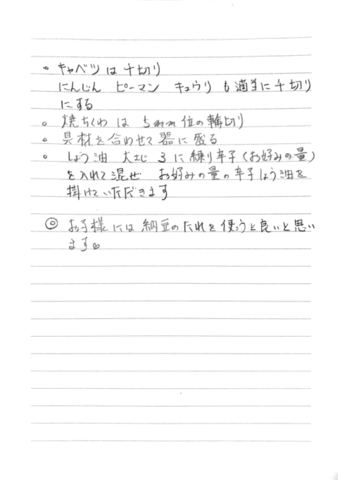 • キャベツは千切り
にんじん ピーマン キュウリも適当に千切り
にする
• 焼ちくわは 5mm位の輪切り
• 具材を合わせて器に盛る
• しょう油 大匕 3に練り辛子(お好みの量)
を入れて混ぜ お好みの量の辛子しょう油を
掛けていただきます
◎ お子様には納豆のたれを使うと良いと思い
ます。